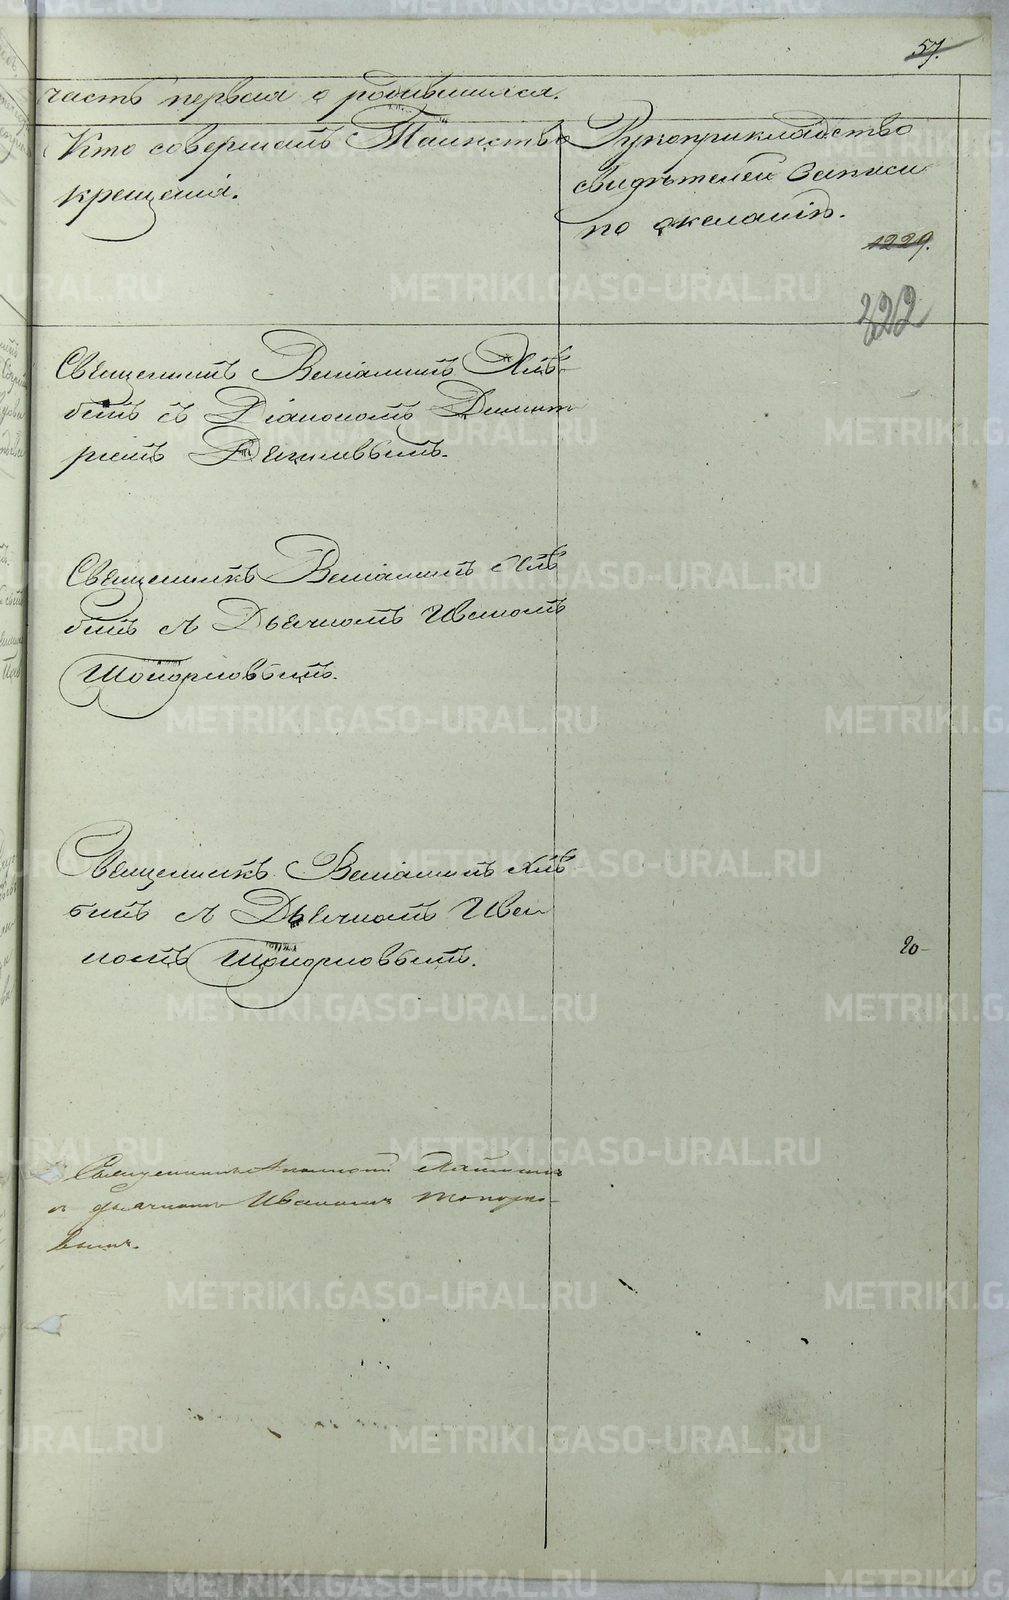 57.
часть первая о родившихся.
Кто совершалъ Таинство
крещенія.
Рукоприкладство
свидѣтелей записи
по желанію.
1229.
322
Священникъ Веніаминъ Хлѣ-
бинъ съ Діакономъ Димит
ріемъ
Священникъ Веніаминъ Хлѣ
бинъ съ Дьячкомъ Иваномъ
Топорковымъ.
Священникъ Веніаминъ Хлѣ
бинъ съ Дьячкомъ Ива
номъ Топорковымъ.
20-
Священникъ
съ дьячкомъ Иваномъ Топорко-
вымъ.
METRIKI.GASO-URAL.RU